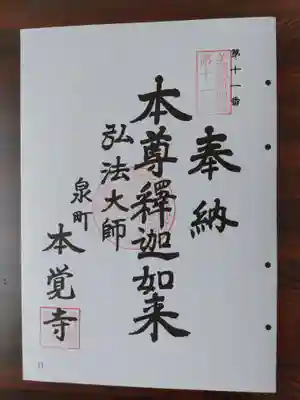 第十一番
奉納
本尊釋迦如来
弘法大師
泉町
本覚寺
11